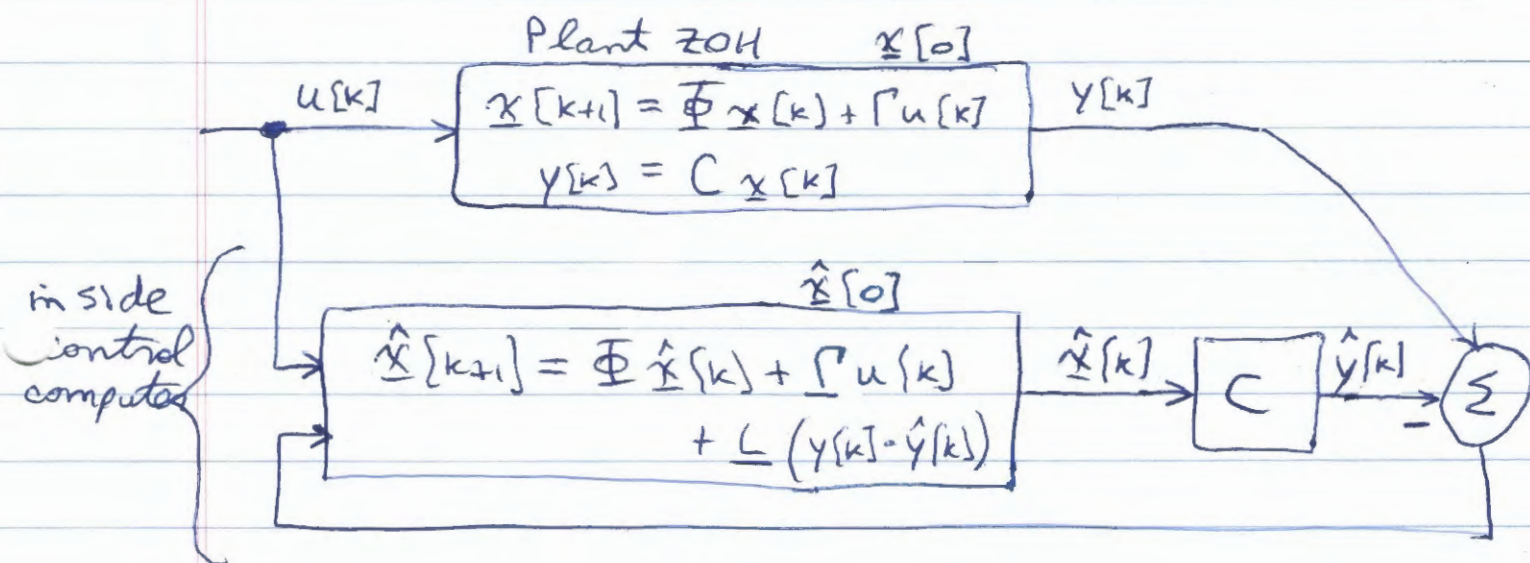 Plant ZOH x̲[0]
u[k]
x̲[k+1] = Φ x̲[k] + Γ u[k]
y[k]
y[k] = C x̲[k]
inside
control
computer
x̲̂[0]
x̲̂[k+1] = Φ x̲̂[k] + Γ̲ u[k]
+ L̲ (y[k] - ŷ[k])
x̲̂[k]
C
ŷ[k]
-
Σ